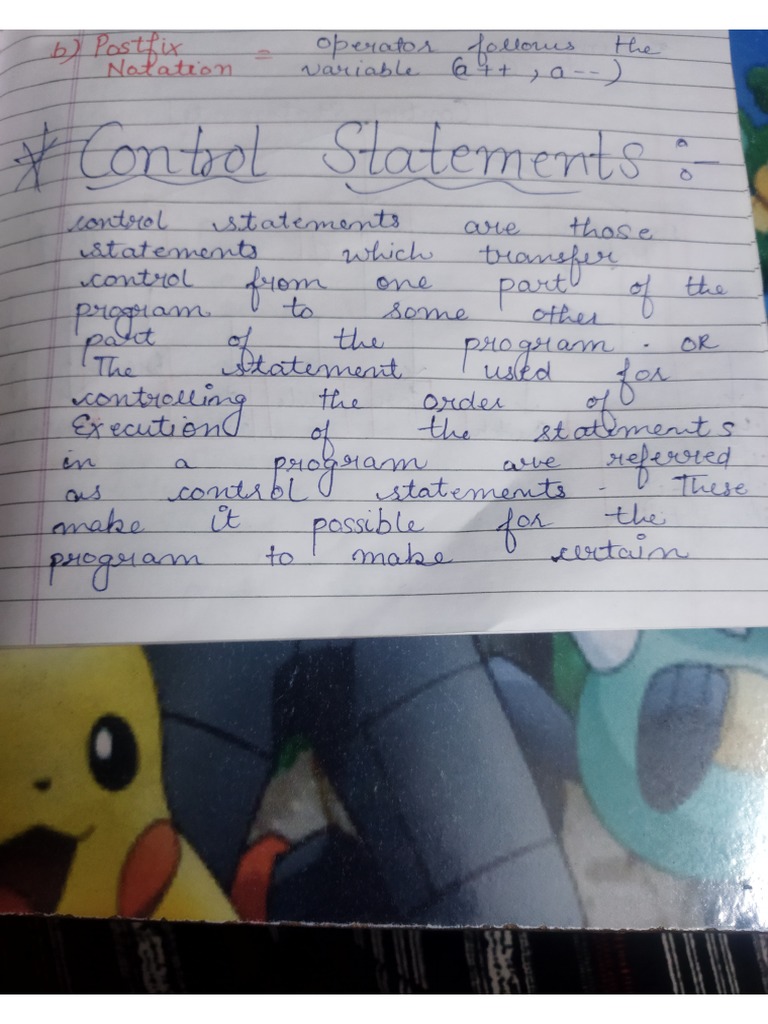 b) Postfix = operator follows the
Notation variable (a++, a--)
* Control Statements :-
control statements are those
statements which transfer
control from one part of the
program to some other
part of the program. OR
The statement used for
controlling the order of
Execution of the statements
in a program are referred
as control statements. These
make it possible for the
program to make certain